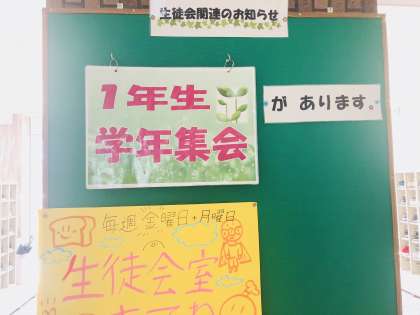 生徒会関連のお知らせ
1年生
学年集会
が あります。
毎週 金曜日+月曜日
生徒会室